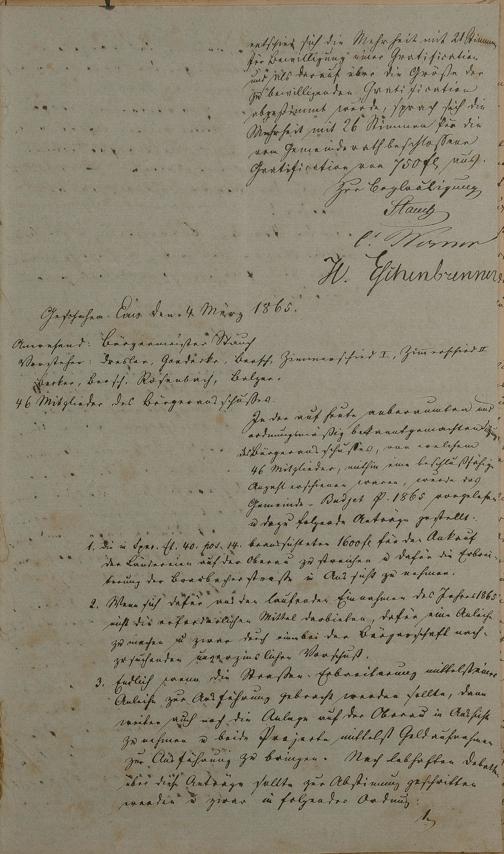 entschied sich die Mehrheit mit 24 Stimmen
für Bewilligung einer Gratification
und als darauf über die Größe der
zu bewilligenden Gratification
abgestimmt wurde, sprach sich die
Mehrheit mit 26 Stimmen für die
vom Gemeinderath beschlossene
Gratification von 750 fl aus.
Zur Beglaubigung
Stauch
C. Werner
H. Eschenbrenner
Geschehen den 4. März 1865.
Anwesend: Bürgermeister Stauch
Vorsteher: Dresler, Goedecke, Bersch, Zimmerschied I, Zimmerschied II
Becker, Bersch, Rosenbach, Balzer.
46 Mitglieder des Bürgerausschusses
In der auf heute anberaumten und
ordnungsmäßig bekanntgemachten
Bürgerausschusses, von welchem
46 Mitglieder, mithin eine beschlußfähige
Anzahl erschienen waren, wurde das
Gemeinde-Budget p. 1865 vorgelesen
u dazu folgende Anträge gestellt.
1. die 40. pos. 14. beabsichteten 1600 fl für den Ankauf
der Ländereien auf der Oberau zu streichen u dafür die Erbrei-
terung der in Aussicht zu nehmen.
2. Wenn sich dafür aus den laufenden Einnahmen des Jahres 1865
nicht die erforderlichen Mittel darbieten, dafür eine Anleihe
zu machen u zwar durch einen bei der Bürgerschaft nach-
zusuchenden unverzinslichen Vorschuß.
3. Endlich wenn die Strassen-Erbreiterung mittelst einer
Anleihe zur Ausführung gebracht werden sollte, dann
weiter auch noch die Anlage auf der Oberau in Aussicht
zu nehmen u beide Projecte mittelst Geldaufnahmen
zur Ausführung zu bringen. Nach lebhaften Debatten
über diese Anträge sollte zur Abstimmung geschritten
werden u zwar in folgender Ordnung: